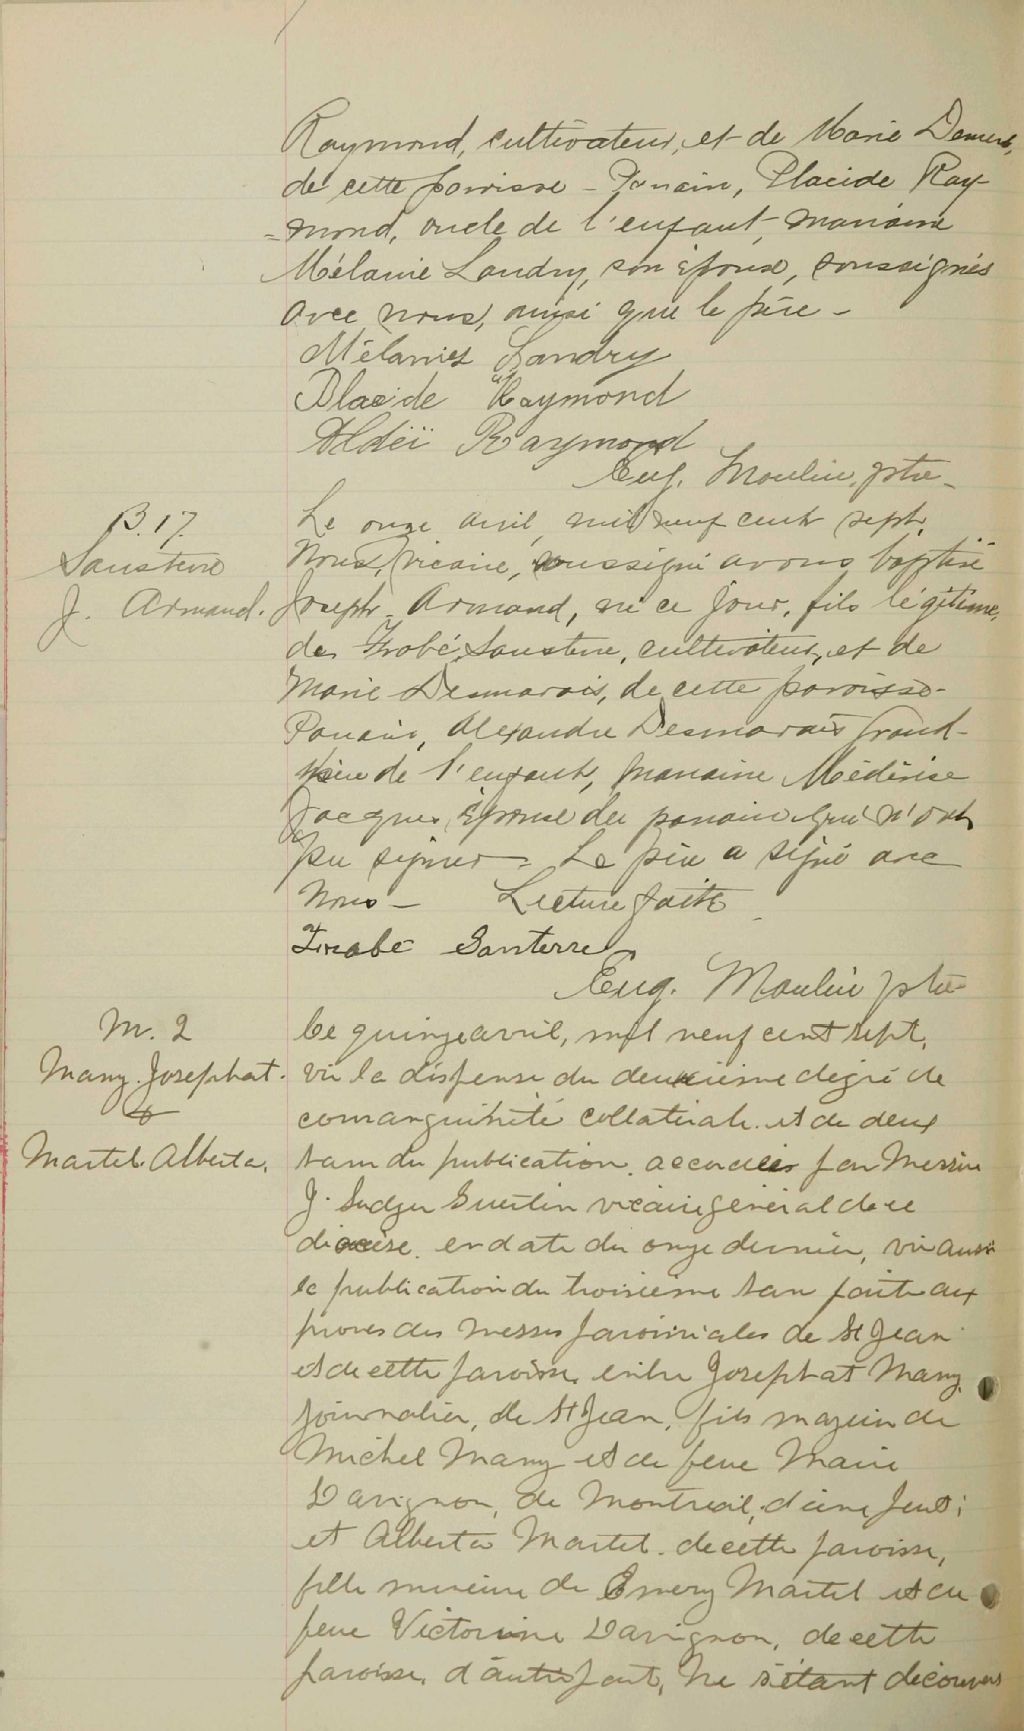 Raymond, cultivateur, et de Marie Demers,
de cette paroisse - Parrain, Placide Ray-
-mond, oncle de l'enfant, marraine
Mélanie Landry, son épouse, soussignés
avec nous, ainsi que le père -
Mélanie Landry
Placide Raymond
Aldéï Raymond
Eug. Moulin, ptre -
B. 17.
Sansterre
J. Armand.
Le onze avril, mil neuf cent sept,
Nous, vicaire, soussigné avons baptisé
Joseph Armand, né ce jour, fils légitime,
de Sansterre, cultivateur, et de
Marie Desmarais, de cette paroisse -
Parrain, Alexandre Desmarais grand-
père de l'enfant, marraine Médérise
Jacques épouse du parrain qui n'ont
pu signer - Le père a signé avec
Nous - Lecture faite
Santerre
Eug. Moulin ptre
M. 2
Many Josephat.
&
Martel Alberta.
Le quinze avril, mil neuf cent sept,
vu la dispense du deuxième degré de
consanguinité collatérale et de deux
bans de publication accordées par Messire
J. Guertin vicaire général de ce
diocèse, en date du onze dernier, vu aussi
la publication du troisième ban faite aux
prones des messes paroissiales de St Jean
et de cette paroisse, entre Josephat Many,
journalier, de St Jean, fils majeur de
Michel Many et de feue Marie
Davignon, de Montreal, d'une part;
et Alberta Martel de cette paroisse,
fille mineure de Emery Martel et de
feue Victorine Davignon, de cette
paroisse, d'autre part, Ne s'étant découvert